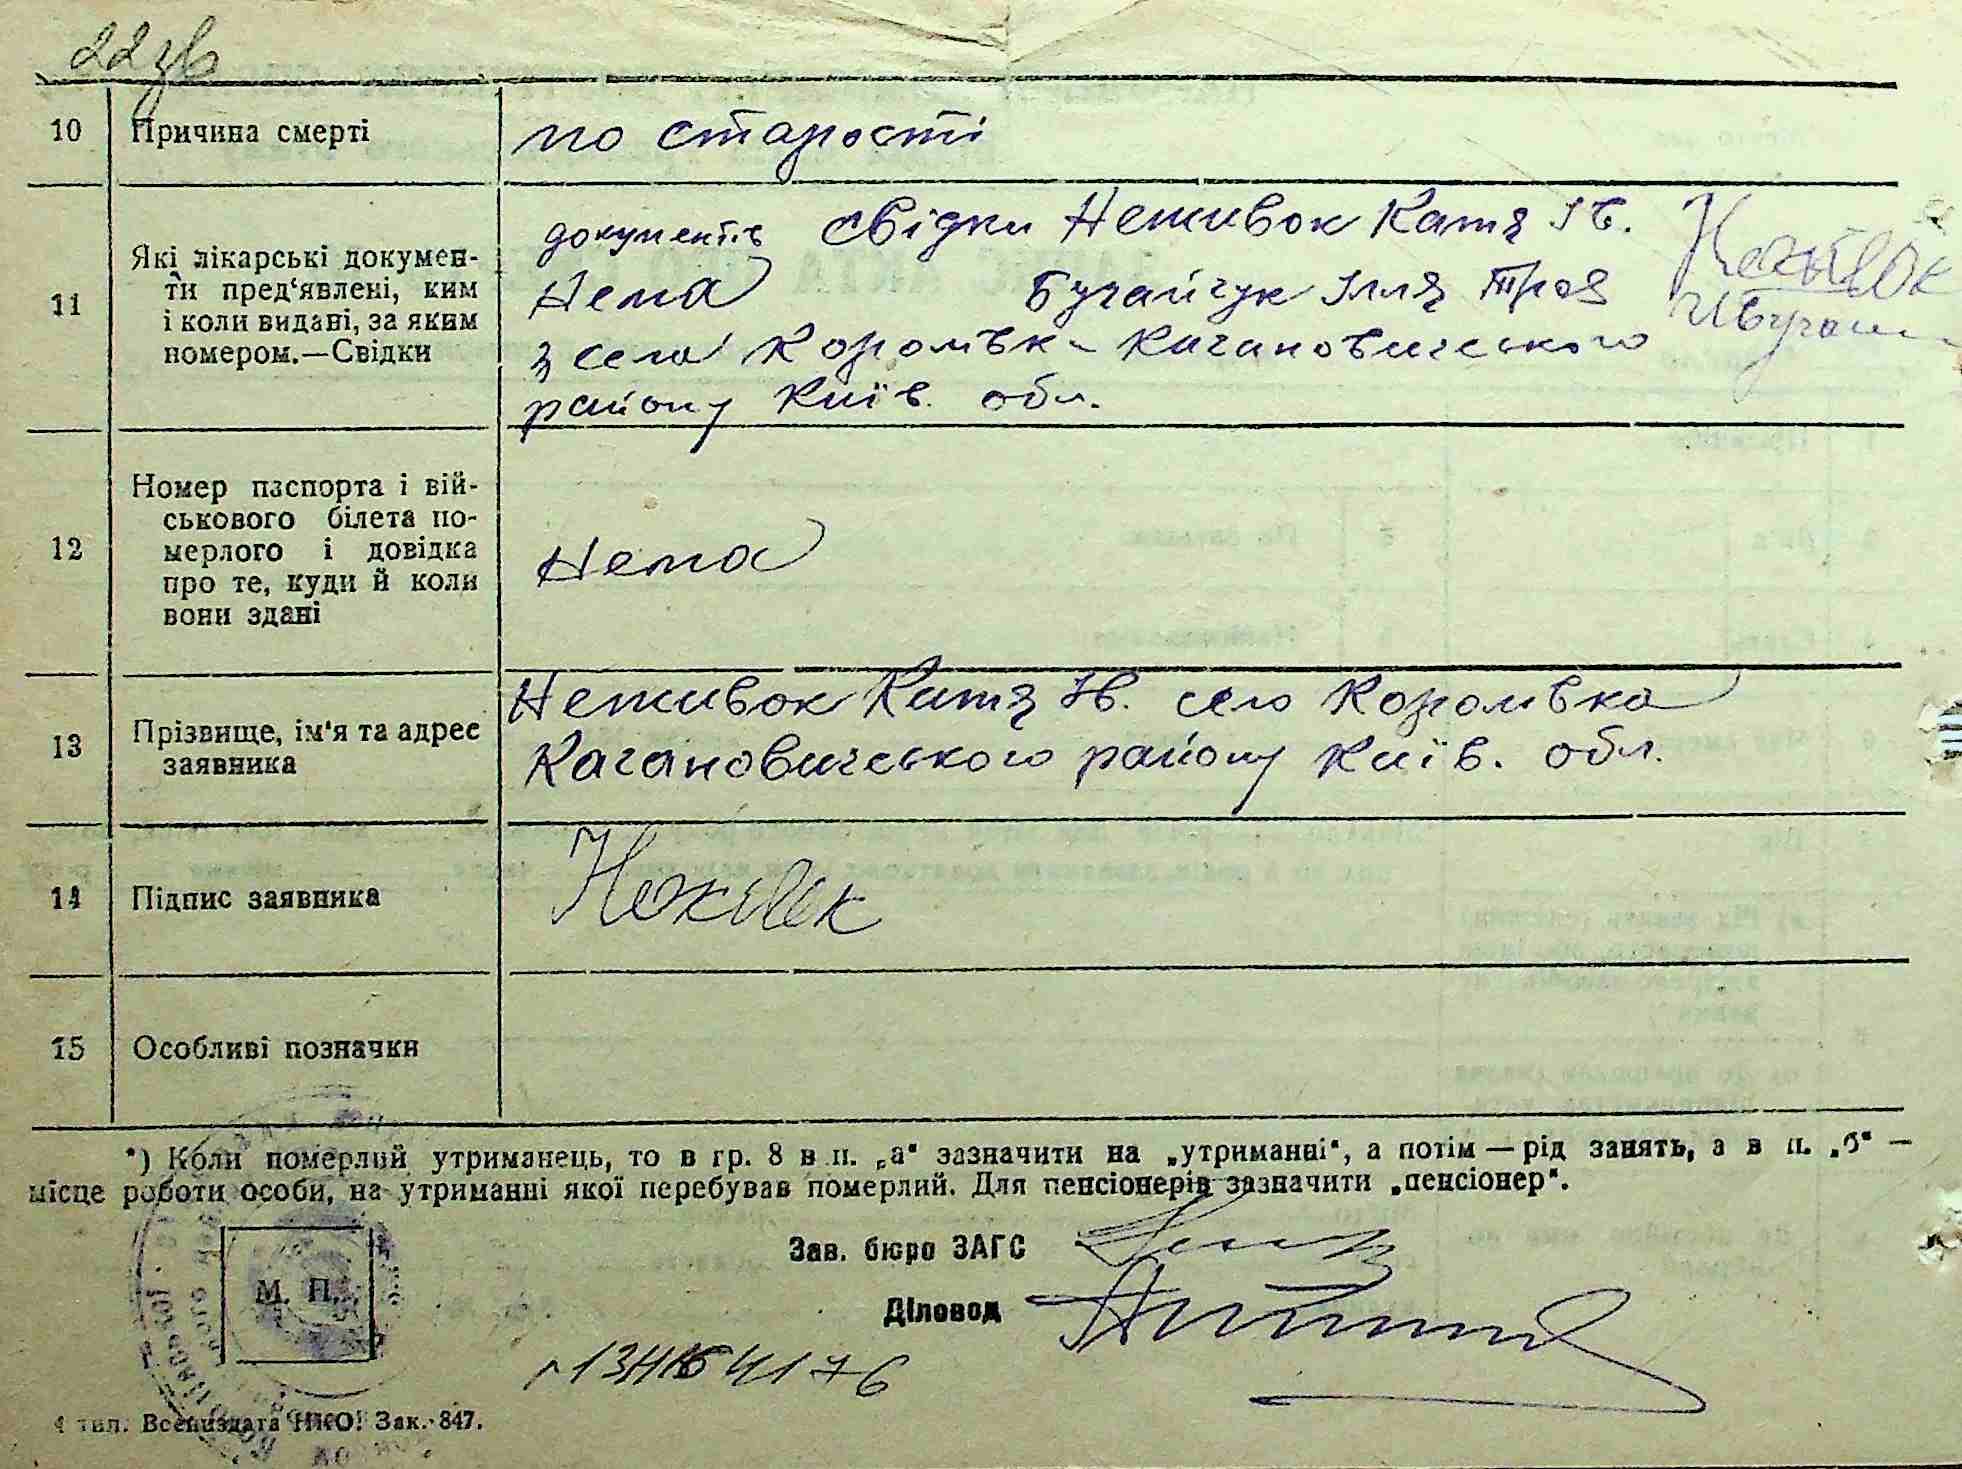 22зв
10 Причина смерті по старості
11 Які лікарські докумен-
ти пред‘явлені, ким
і коли видані, за яким
номером.—Свідки
документів свідки Неживок Катя Ів.
Нема Бугайчук Ілля
з села Коромівка Кагановичського
району Київ. обл.
12 Номер паспорта і вій-
ськового білета по-
мерлого і довідка
про те, куди й коли
вони здані
Нема
13 Прізвище, ім'я та адрес
заявника
Неживок Катя Ів. село Коромівка
Кагановичського району Київ. обл.
14 Підпис заявника
15 Особливі позначки
*) Коли померлий утриманець, то в гр. 8 в п. „а“ зазначити на „утриманні“, а потім — рід занять, а в п. „б“ —
місце роботи особи, на утриманні якої перебував померлий. Для пенсіонерів зазначити „пенсіонер“.
Зав. бюро ЗАГС
М. П.
Діловод
4 тип. Всеписдата НКО. Зак. 847.